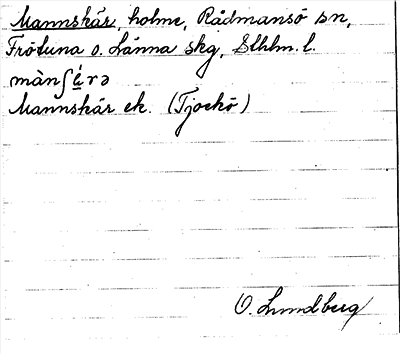 Mannskär, holme, Rådmansö sn,
Frötuna o. Länna skg, Sthlm. l.
mànʃä́rə
Mannskär ek. (Tjockö)
O. Lundberg